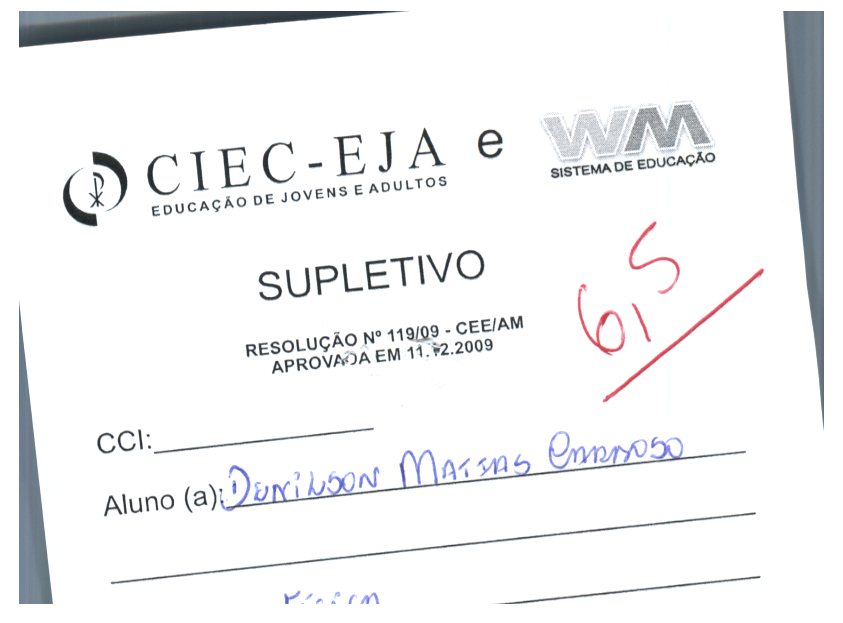 CIEC-EJA e WM
EDUCAÇÃO DE JOVENS E ADULTOS
SISTEMA DE EDUCAÇÃO
SUPLETIVO
6,5
RESOLUÇÃO Nº 119/09 - CEE/AM
APROVADA EM 11.12.2009
CCI:
Aluno (a): Denilson Matias Cardoso